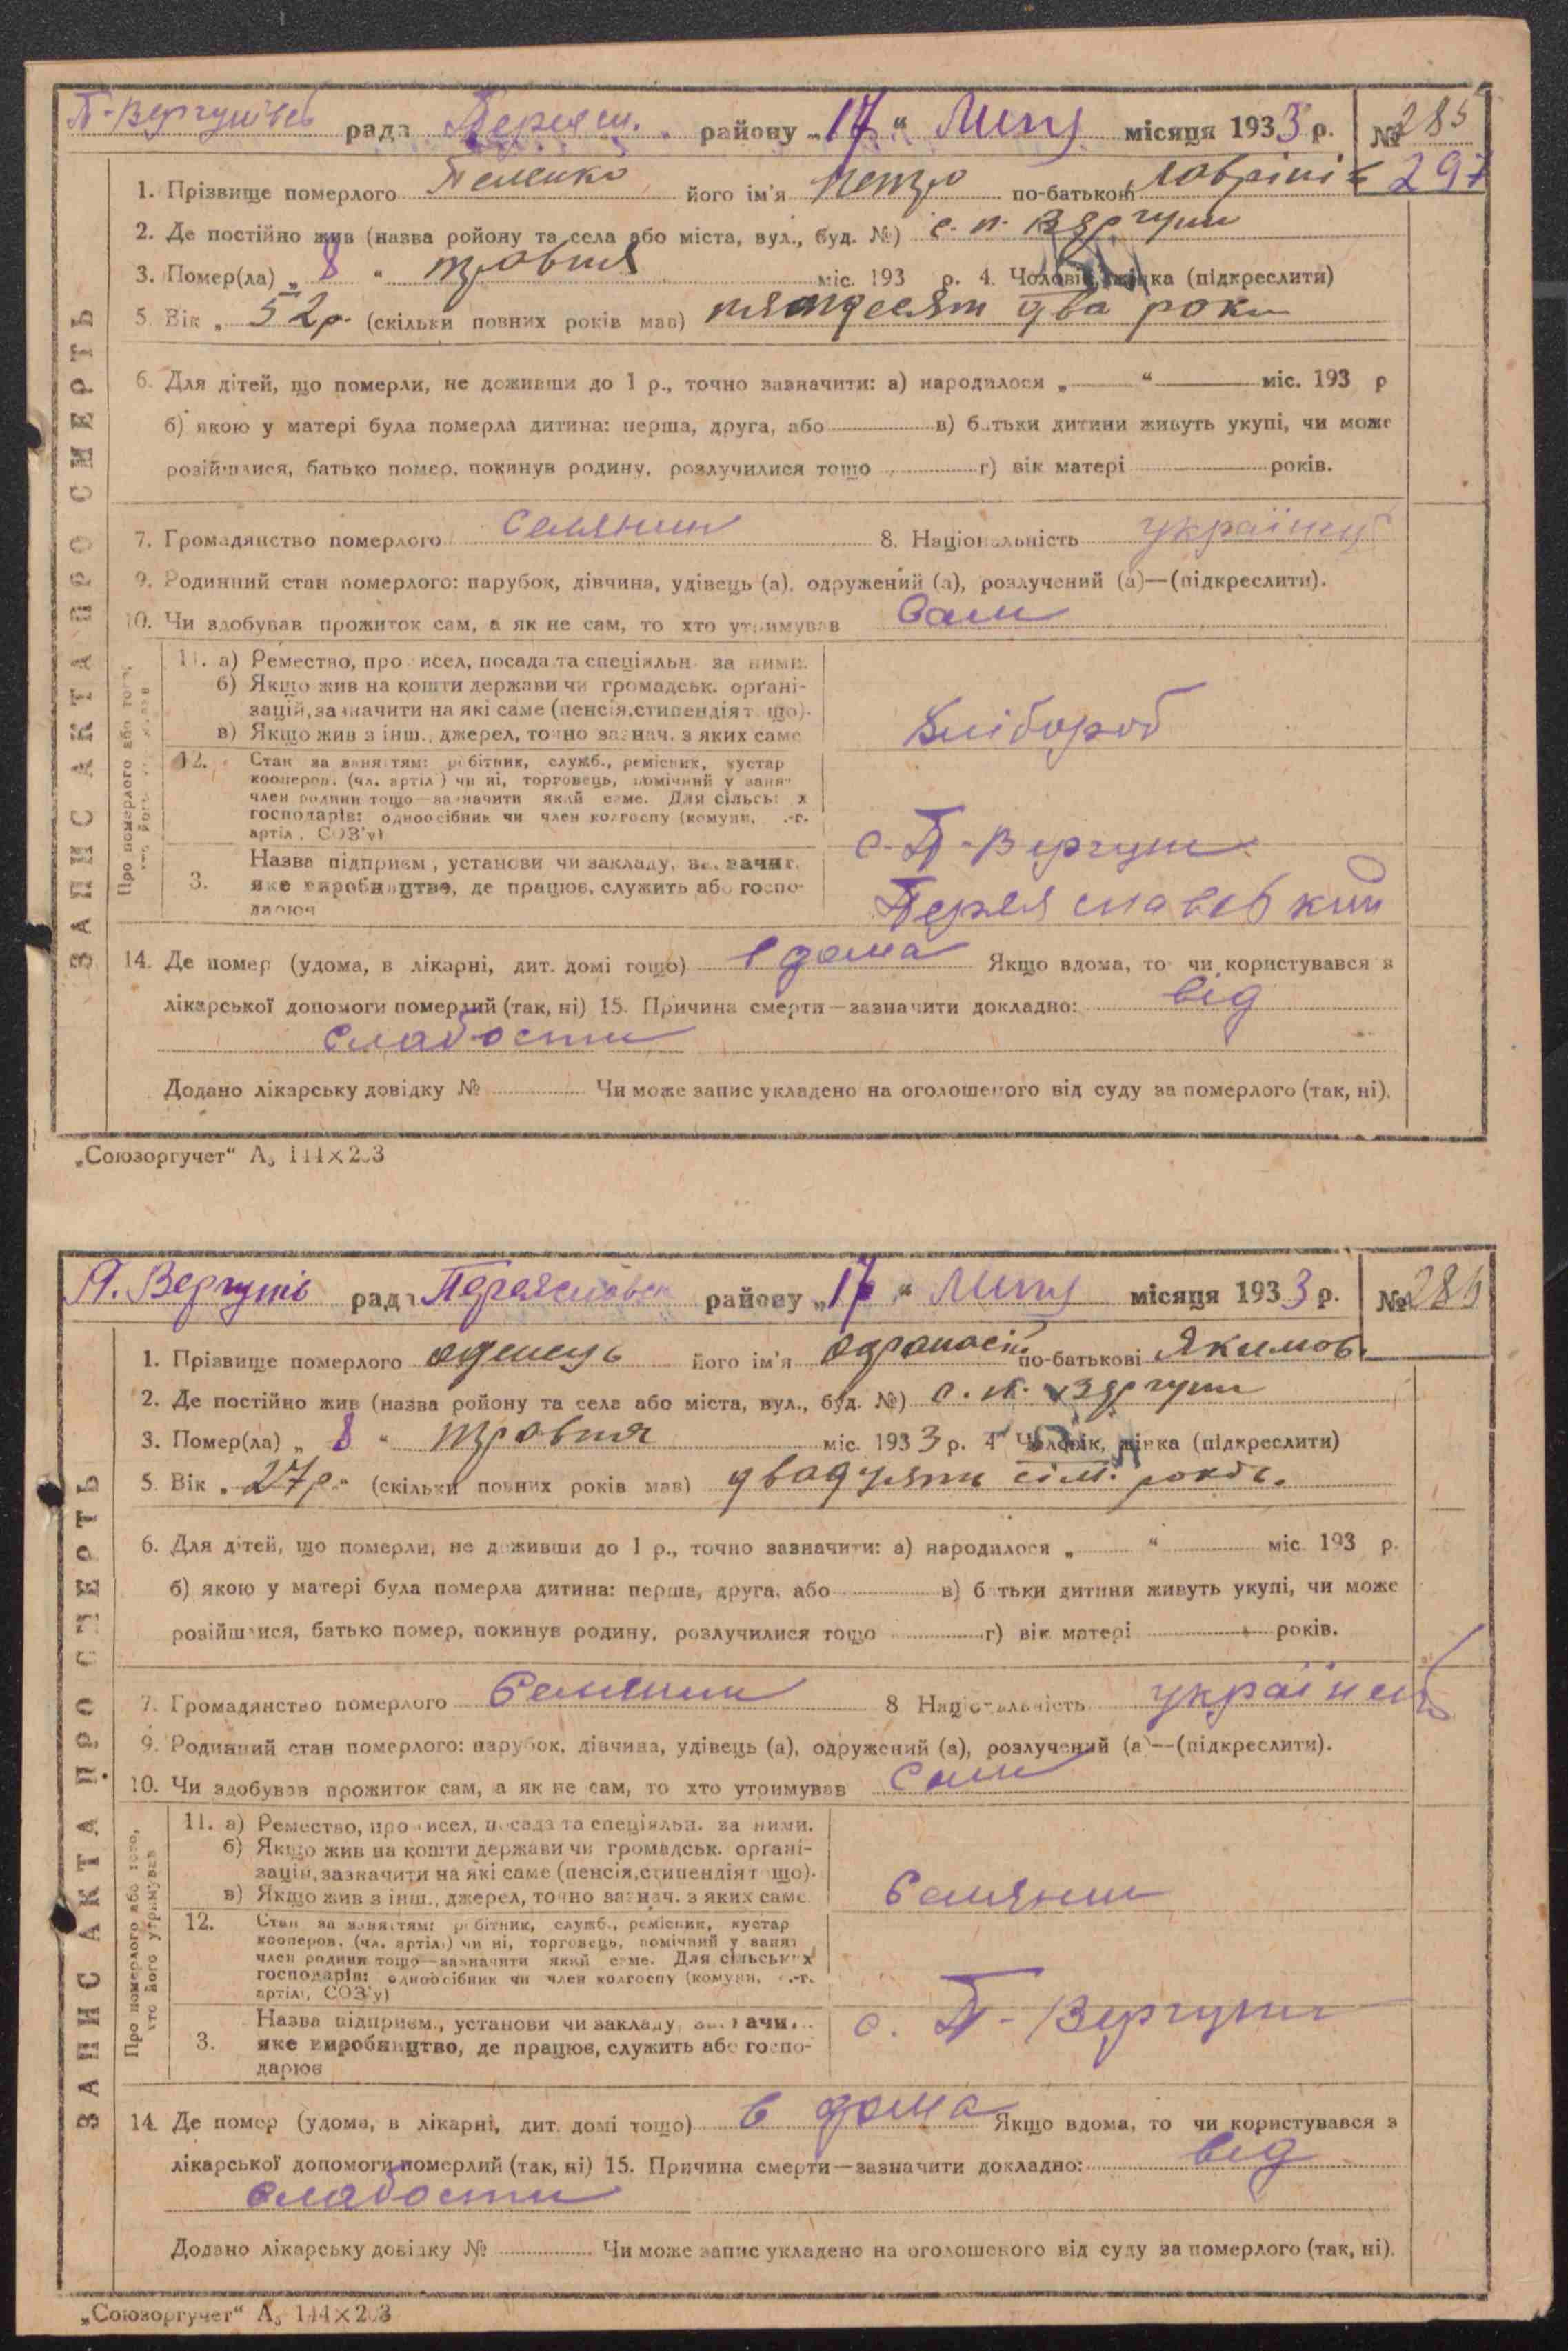 П-Вергунівс рада Переясл. району „17“ Липня місяця 1933 р. № 285
297
1. Прізвище померлого його ім'я Петро по-батькові
2. Де постійно жив (назва ройону та села або міста, вул., буд. №) с. п. Вергуни
3. Помер(ла) „ 8 “ травня міс. 193 р. 4. Чоловік, жінка (підкреслити)
5 Вік „ 52 р. (скільки повних років мав) пятдесят два роки
6. Для дітей, що померли, не доживши до 1 р., точно зазначити: а) народилося „ “ міс. 193 р
б) якою у матері була померла дитина: перша, друга, або в) батьки дитини живуть укупі, чи може
розійшлися, батько помер, покинув родину, розлучилися тощо г) вік матері років.
7. Громадянство померлого селянин 8. Національність українець
9. Родинний стан померлого: парубок, дівчина, удівець (а), одружений (а), розлучений (а)—(підкреслити).
10. Чи здобував прожиток сам, а як не сам, то хто утримував Сам
11. а) Ремество, промисел, посада та спеціяльн. за ними.
б) Якщо жив на кошти держави чи громадськ. органі-
зацій, зазначити на які саме (пенсія, стипендія тощо).
в) Якщо жив з інш., джерел, точно зазнач. з яких саме
Хлібороб
12. Стан за заняттям: робітник, служб., ремісник, кустар
кооперов. (чл. артіл.) чи ні, торговець, помічний у занят
член родини тощо—зазначити який саме. Для сільських
господарів: одноосібник чи член колгоспу (комуни, с.-г.
артіл., СОЗ'у)
с. П-Вергуни
Назва підприєм., установи чи закладу, зазначит.
3. яке виробництво, де працює, служить або госпо-
дарює
Переяславський
14. Де помер (удома, в лікарні, дит. домі тощо) в дома Якщо вдома, то чи користувався з
лікарської допомоги померлий (так, ні) 15. Причина смерти—зазначити докладно: від
слабости
Додано лікарську довідку № Чи може запис укладено на оголошеного від суду за померлого (так, ні).
„Союзоргучет“ А₅ 144×203
ЗАПИС АКТА ПРО СМЕРТЬ
Про померлого або того, хто його утримував
П. Вергунів рада Переяславск району „17“ Липня місяця 1933 р. № 286
1. Прізвище померлого одинець його ім'я по-батькові Якимов.
2. Де постійно жив (назва ройону та села або міста, вул., буд. №) с. п. Вергуни
3. Помер(ла) „ 8 “ травня міс. 1933 р. 4 Чоловік, жінка (підкреслити)
5. Вік „ 27 р. “ (скільки повних років мав) двадцять сім. років.
6. Для дітей, що померли, не доживши до 1 р., точно зазначити: а) народилося „ “ міс. 193 р.
б) якою у матері була померла дитина: перша, друга, або в) батьки дитини живуть укупі, чи може
розійшлися, батько помер, покинув родину, розлучилися тощо г) вік матері років.
7. Громадянство померлого Селянин 8 Національність українець
9. Родинний стан померлого: парубок, дівчина, удівець (а), одружений (а), розлучений (а)—(підкреслити).
10. Чи здобував прожиток сам, а як не сам, то хто утримував Сам
11. а) Ремество, промисел, посада та спеціяльн. за ними.
б) Якщо жив на кошти держави чи громадськ. органі-
зацій, зазначити на які саме (пенсія, стипендія тощо).
в) Якщо жив з інш., джерел, точно зазнач. з яких саме.
Селянин
12. Стан за заняттям: робітник, служб., ремісник, кустар
кооперов. (чл. артіл.) чи ні, торговець, помічний у занят
член родини тощо—зазначити який саме. Для сільських
господарів: одноосібник чи член колгоспу (комуни, с.-г.
артіл., СОЗ'у)
Назва підприєм., установи чи закладу, зазначи.
3. яке виробництво, де працює, служить або госпо-
дарює
с. П-Вергуни
14. Де помер (удома, в лікарні, дит. домі тощо) в дома Якщо вдома, то чи користувався з
лікарської допомоги померлий (так, ні) 15. Причина смерти—зазначити докладно: від
слабости
Додано лікарську довідку № Чи може запис укладено на оголошеного від суду за померлого (так, ні).
„Союзоргучет“ А₅ 144×203
ЗАПИС АКТА ПРО СМЕРТЬ
Про померлого або того, хто його утримував